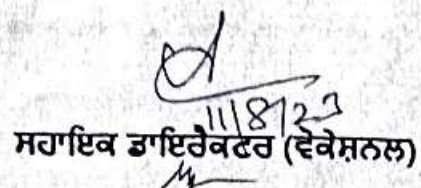 11/8/23
ਸਹਾਇਕ ਡਾਇਰੈਕਟਰ (ਵੋਕੇਸ਼ਨਲ)